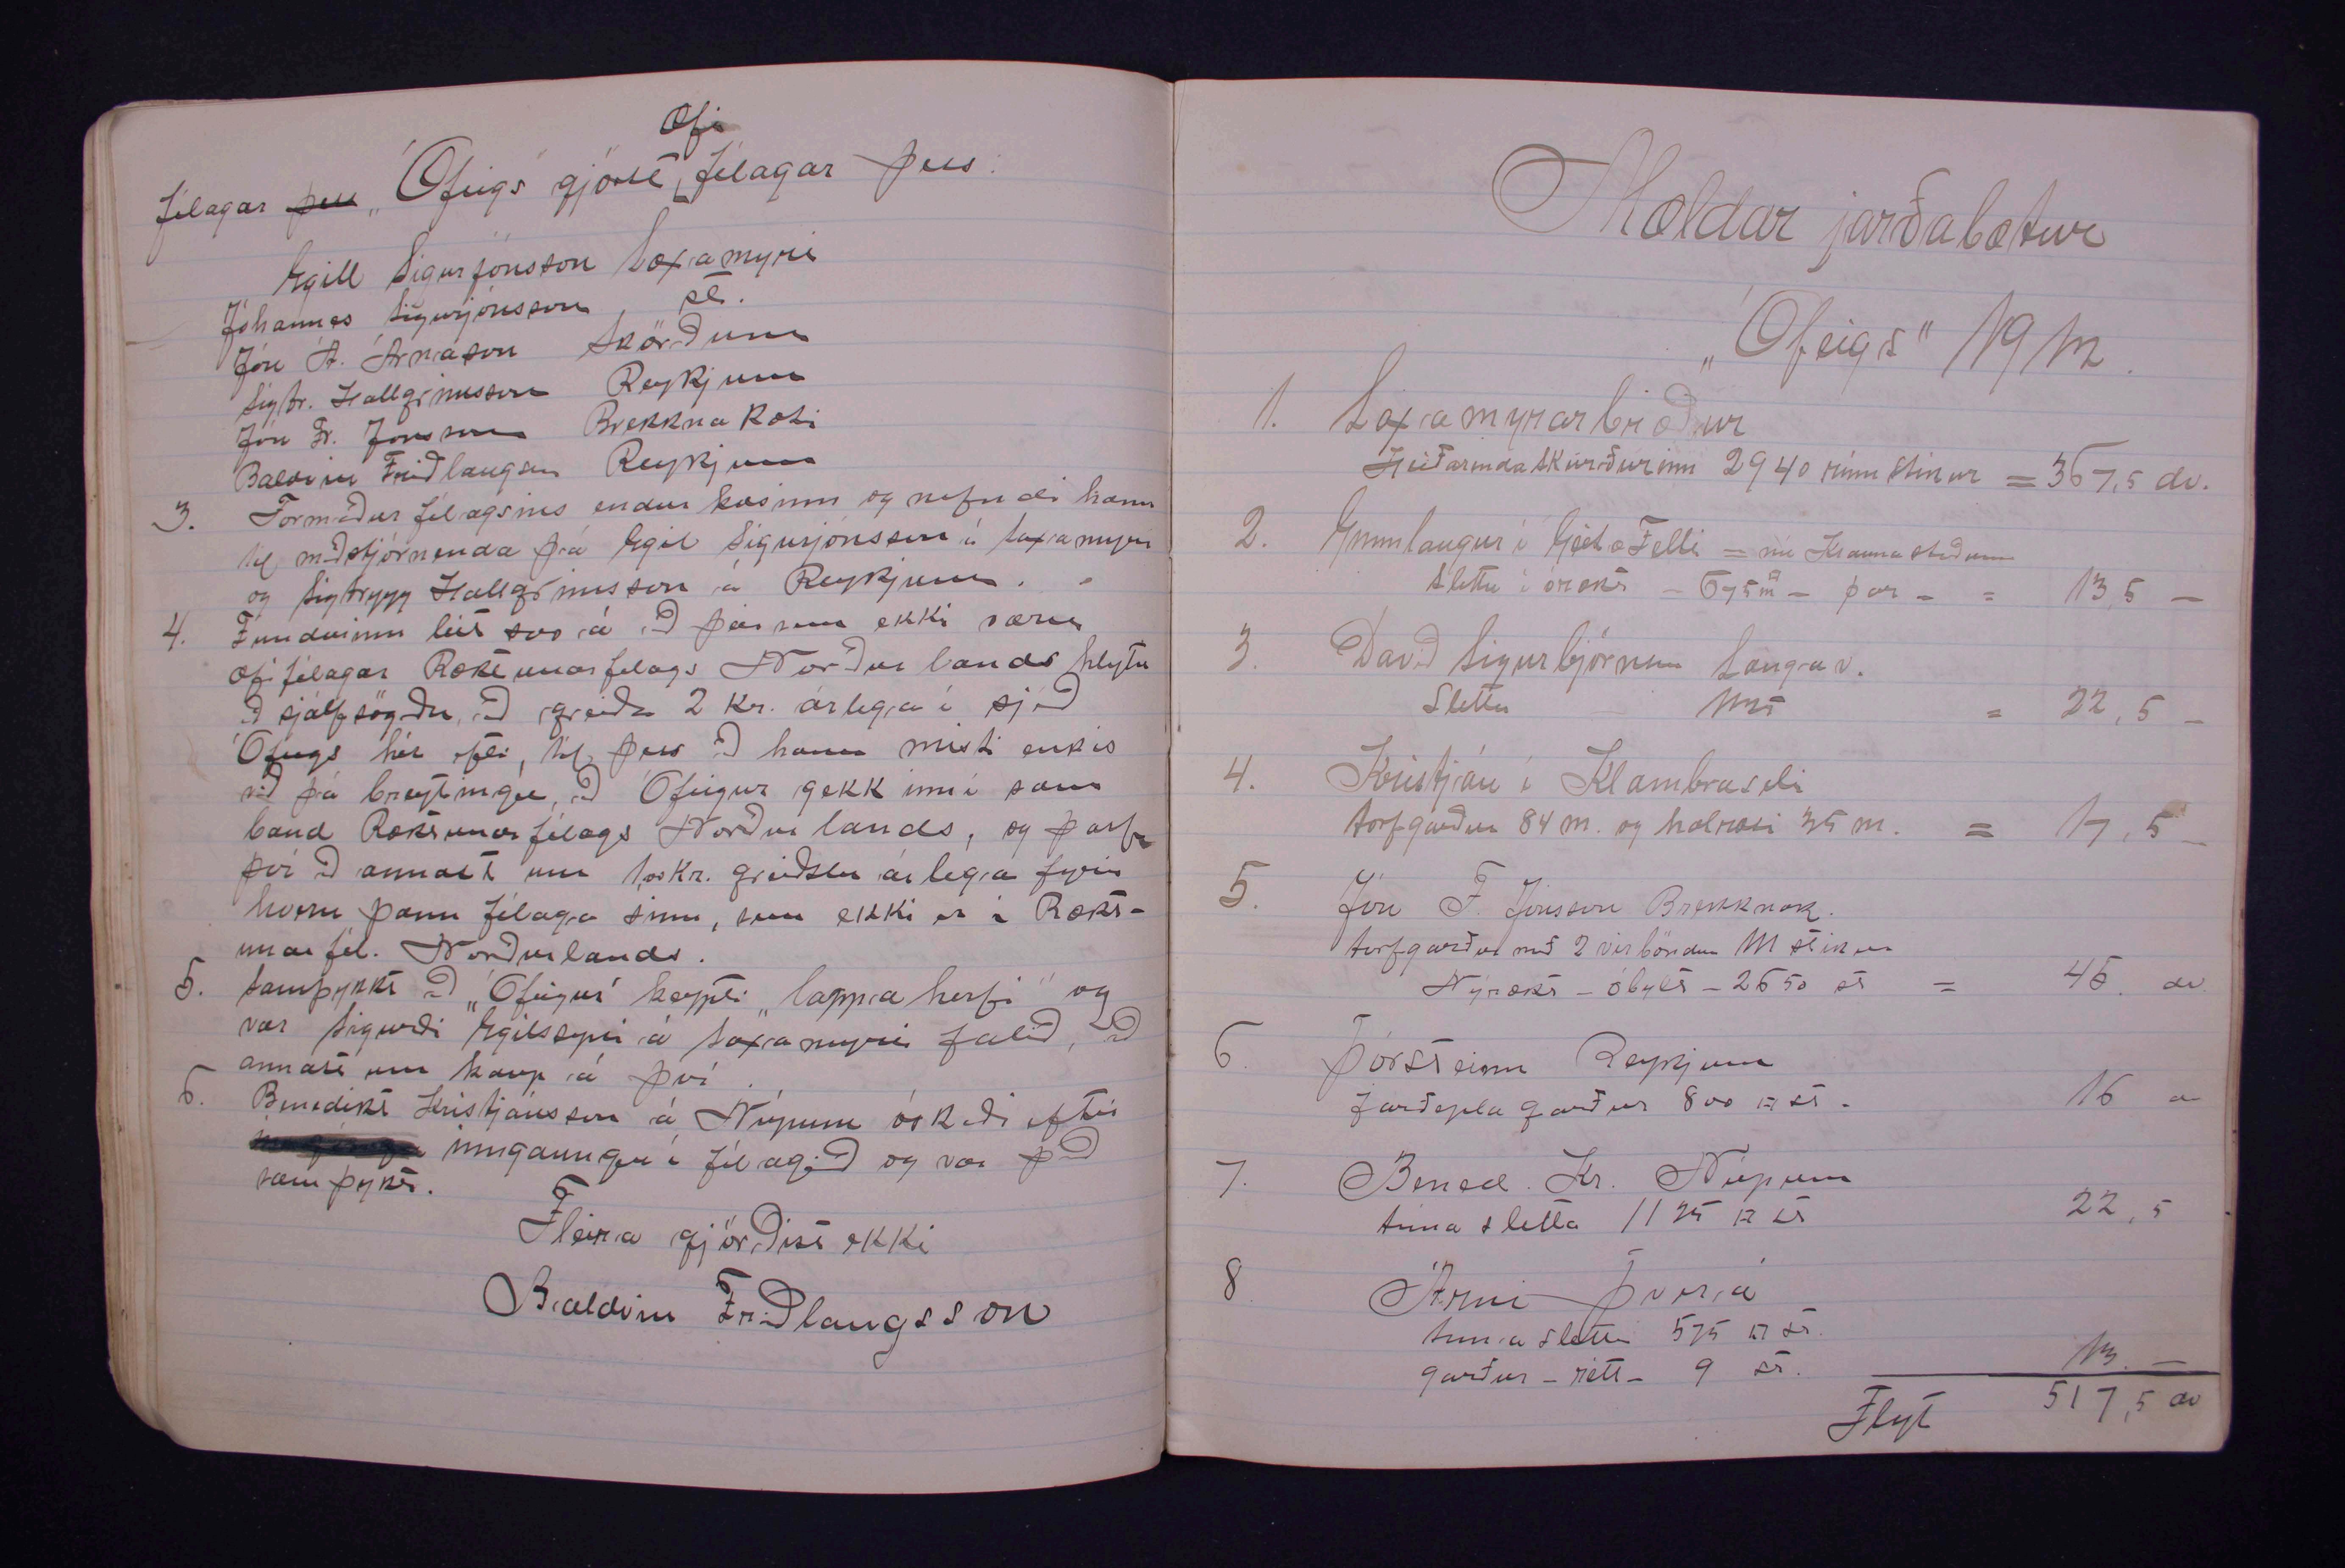 æfi
félagar þess „Ófeigs" gjörst félagar þess.
Egill Sigurjónsson Laxamýri
Jóhannes Sigurjónsson st.
Jón Á. Árnason Skörðum
Sigtr. Hallgrímsson Reykjum
Jón Fr. Jónsson Brekknakoti
Baldvin Friðlaugsson Reykjum
3. Formaður félagsins endurkosinn og nefndi hann
til meðstjórnenda þá Egil Sigurjónsson á Laxamýri
og Sigtrygg Hallgrímsson á Reykjum.
4. Fundurinn leit svo á að þeir sem ekki væru
æfifélagar Ræktunarfélags Norðurlands hlytu
að sjálfsögðu, að greiða 2 kr. árlega í sjóð
Ófeigs hér eftir, til þess að hann misti enkis
við þá breytingu, að Ófeigur gekk inní sam
band Ræktunarfélags Norðurlands, og þarf
því að annast um 1,00 kr. greiðslu árlega fyrir
hvern þann félaga sinn, sem ekki er í Rækt-
unarfél. Norðurlands.
5. Samþykkt að „Ófeigur" keypti „lappa herfi" og
var Sigurði Egilssyni á Laxamýri falið, að
annast um kaup á því.
6. Benedikt Kristjánsson á Núpum óskaði eftir
inngaungu í félagið og var það
samþykt.
Fleira gjörðist ekki
Baldvin Friðlaugsson
Mældar jarðabætur
„Ófeigs" 1912.
1. Laxamýrarbræður
Heiðarendaskurðurinn 2940 rúmstikur = 367,5 dv.
2. Gunnlaugur í Geitafelli = nú Hraunastöðum
Sletta í órækt – 675 m – þar – = 13,5 –
3. Davíð Sigurbjörnsson Langav.
Sletta 1125 = 22,5 –
4. Kristján í Klambraseli
torfgarður 84 m. og holræsi 35 m. = 17,5 –
5. Jón F. Jónsson Brekknak.
torfgarður með 2 vírböndum 111 stikur
Nýrækt – óbylt – 2650 st = 45. dv.
6. Þórsteinn Reykjum
Jarðeplagarður 800 □ st. 16 –
7. Bened. Kr. Núpum
túnaslétta 1125 □ st 22,5
8. Árni Þverá
túnaslétta 575 □ st.
garður – rétt – 9 st. 13. –
Flyt 517,5 dv